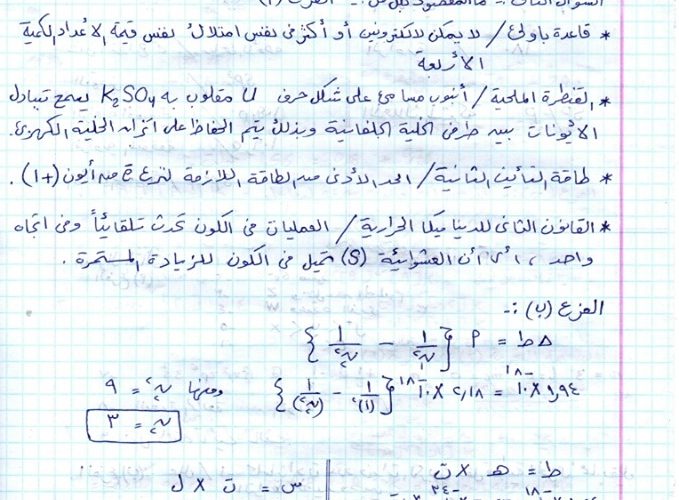 السؤال الثاني :- ما المقصود بكل من :-
* قاعدة باولي / لا يمكن لالكترونين أو أكثر في نفس امتلاك نفس قيمة الأعداد الكمية
الأربعة
* القنطرة الملحية / أنبوب مسامي على شكل حرف U مقلوب به K₂SO₄ يسمح تبادل
الأيونات بين طرفي الخلية الجلفانية وبذلك يتم الحفاظ على اتزان الخلية الكهربي.
* طاقة التأين الثانية / الحد الأدنى من الطاقة اللازمة لنزع ē من أيون (+1) .
* القانون الثاني للديناميكا الحرارية / العمليات في الكون تحدث تلقائياً وفي اتجاه
واحد ، أي أن العشوائية (S) تميل في الكون للزيادة المستمرة .
الفرع (ب) :-
Δط = P { ١/ن٢ - ١/ن٢ }
١,٩٤ × ١٠-١٨ = ٢,١٨ × ١٠-١٨ { ١/(١)٢ - ١/(ن)٢ } ومنها ن٢ = ٩
ن = ٣
ط = هـ × ت
س = ت × ل